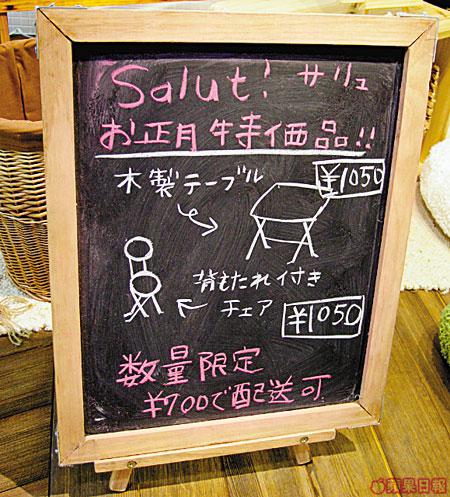 Salut! サリュ
お正月特価品!!
木製テーブル
¥1050
背もたれ付き
チェア
¥1050
数量限定
¥700で配送可
蘋果日報